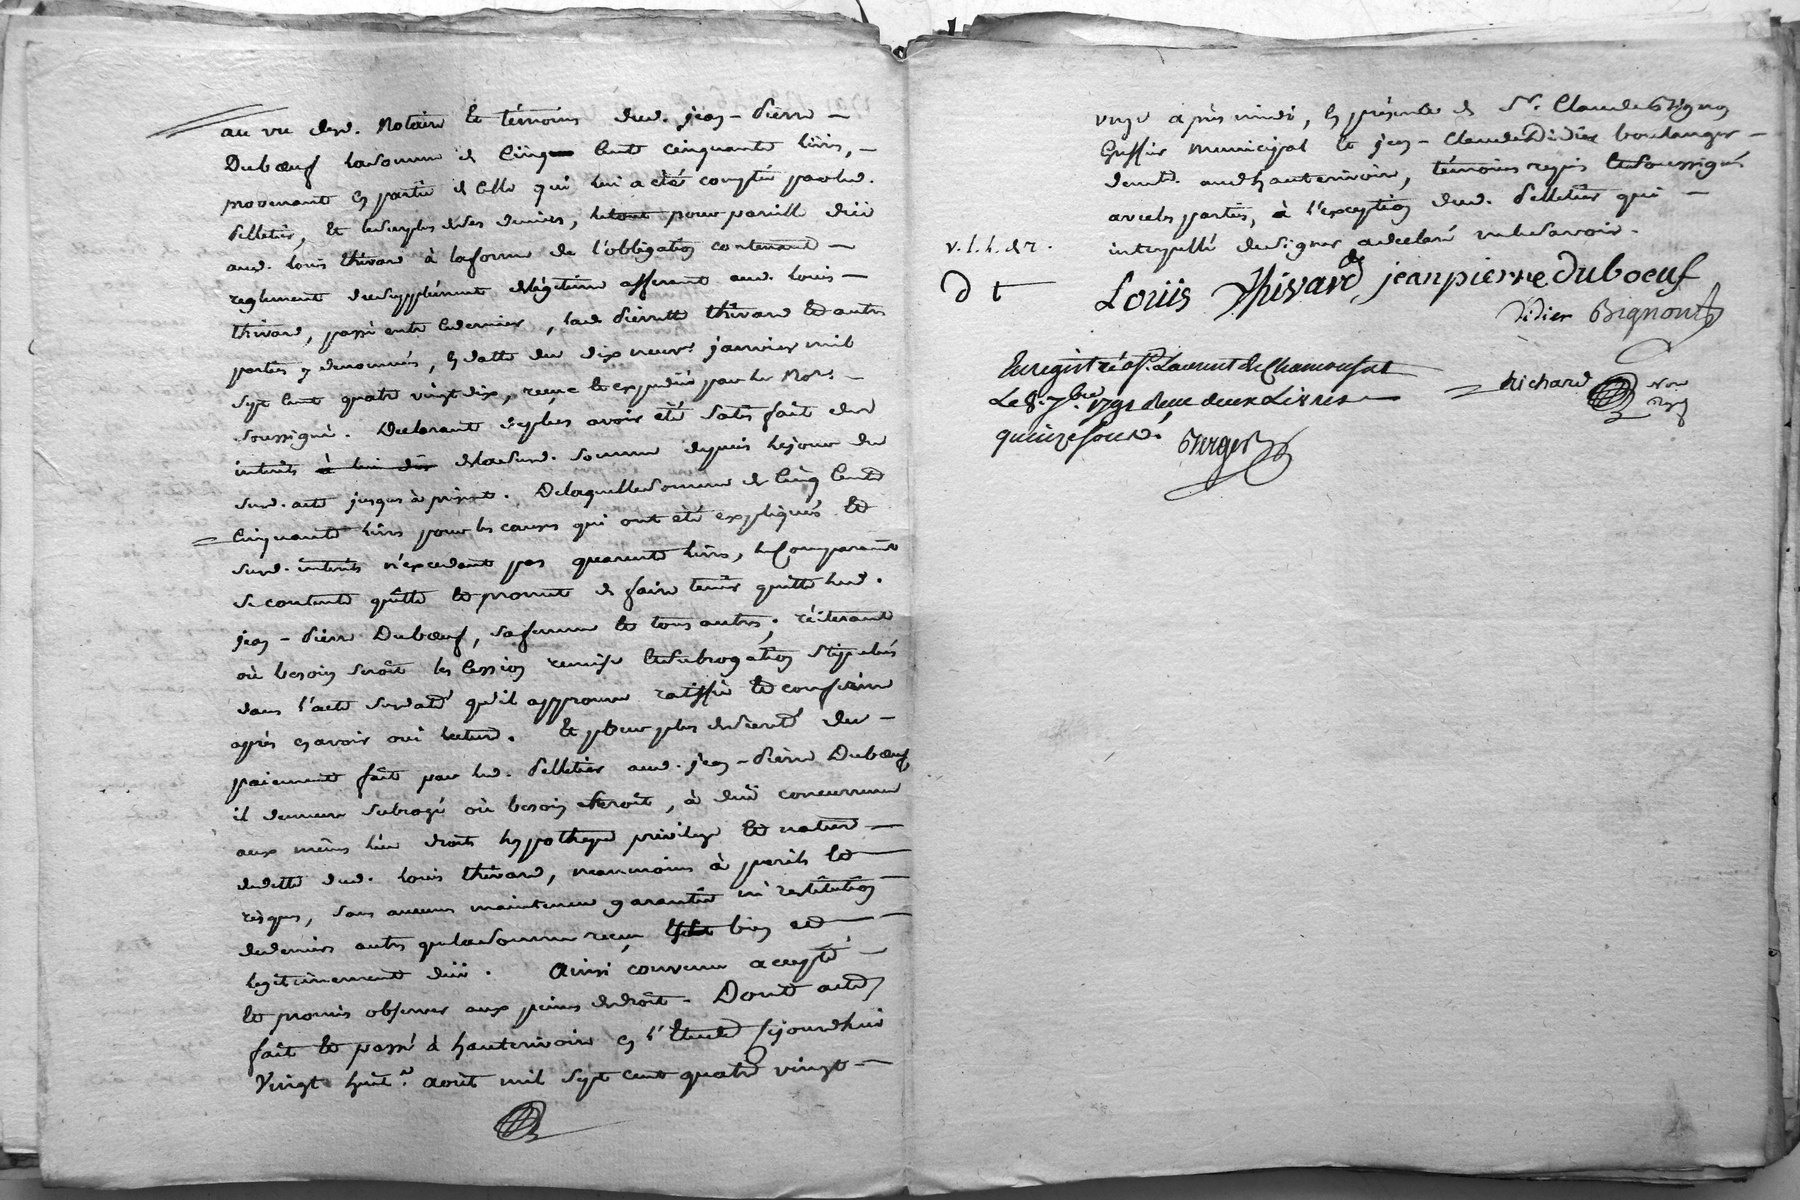 au vu desd. Notaire Et témoins dud. jean-pierre
Duboeuf la somme de Cinq Cent cinquante livres,
provenant en partie de Celle qui lui a été comptée par led.
pelletier, Et le surplus de ses deniers, pour pareille düe
aud. louis thivard à la forme de l'obligation contenant
reglement du supplément de légitime afferant aud. louis
thivard, passé entre ce dernier, lad. pierrette thivard Et autres
parties y denommées, en datte du dix neuf janvier mil
sept Cent quatre vingt dix, reçue Et expediée par led. Nore.
soussigné. Declarant de plus avoir été satisfait des
interets à lui dûs de lad. somme depuis le jour du
susd. acte jusques à présent. De laquelle somme de Cinq Cent
Cinquante livres pour les causes qui ont été expliquées Et
susd. interets n'excedant pas quarante livres, le Comparant
se contente quitte Et promet de faire tenir quitte led.
jean-pierre Duboeuf, sa femme Et tous autres; réiterant
où besoin seroit les Cession remise Et subrogation stipulées
dans l'acte susdaté qu'il approuve ratiffie Et confirme
après en avoir oui lecture. Et pour plus de sureté du
paiement fait par led. pelletier aud. jean-pierre Duboeuf,
il demeure subrogé où besoin seroit, à düe concurrence
aux mêmes lieu droits hypotheque privilege Et nature
de dette dud. louis thivard, neanmoins à perils Et
risques, sans aucune maintenue garantie ni restitution
de deniers autres que la somme reçue bien Et
legitimement düe. Ainsi convenu accepté
Et promis observer aux peines de droit. Dont acte
fait Et passé à hauterivoire en l'Etude cejourdhui
Vingt huit aout mil sept cent quatre vingt
onze après midi, En présence de Sr. Claude
Greffier Municipal Et jean-Claude Didier boulanger
demt. aud. hauterivoire, témoins requis Et soussignés
avec les parties, à l'exception dud. pelletier qui
interpellé de signer a declaré ne le savoir.
v.l.l.d.r.
D t
Louis Thivard jean pierre duboeuf
Didier Bignont
Enregistré à St. Laurent de Chamousset
Le 8. 7bre 1791 Reçu deux Livres
quinze sous.
richard Nore